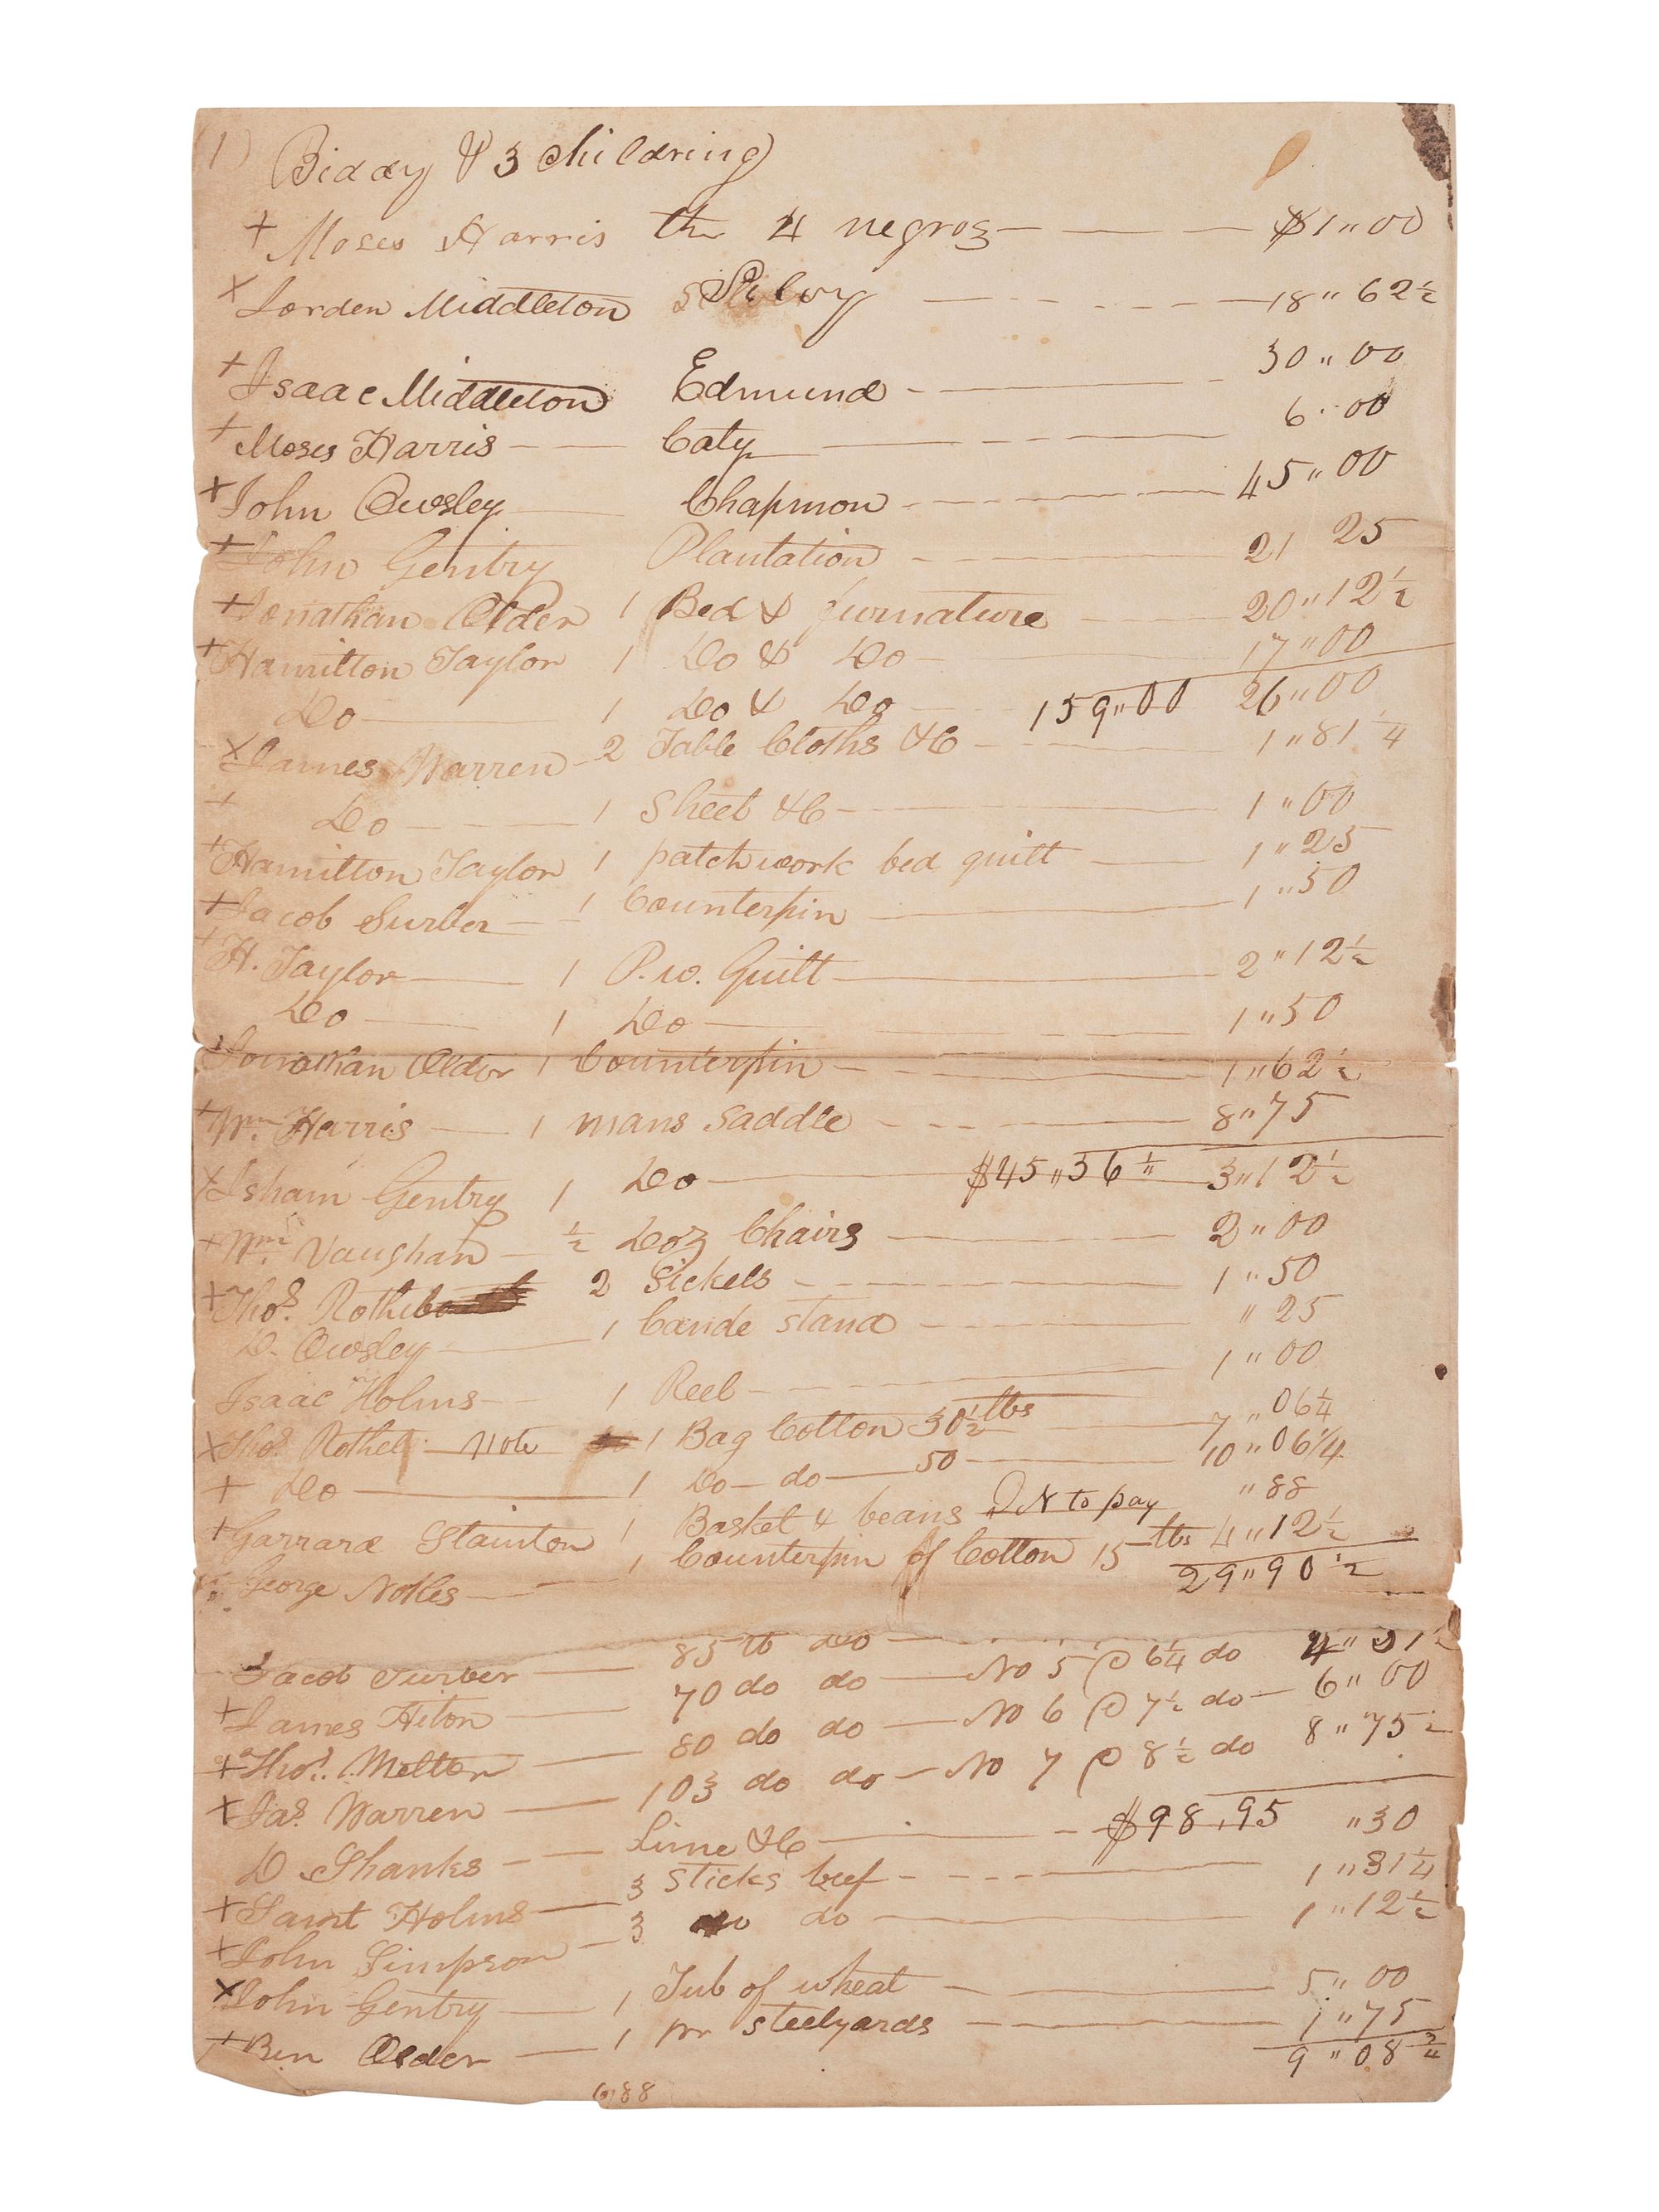 (1)
Bidday & 3 Childring
+ Moses Harris the 4 negros $1"00
x Jorden Middleton Silvy 18"62½
+ Isaac Middleton Edmund 30"00
+ Moses Harris Caty 6"00
x John Owsley Chapmon 45"00
+ John Gentry Plantation 21 25
+ Jonathan Older 1 Bed & furnature 20"12½
+ Hamilton Taylor 1 Do & Do 17"00
Do 1 Do & Do 159"00 26"00
x James Warren 2 Table Cloths &C 1"81¼
+ Do 1 Sheet &C 1"00
+ Hamilton Taylor 1 patch work bed quilt 1"25
+ Jacob Surber 1 Counterpin 1"50
+ H. Taylor 1 P.w. Quilt 2"12½
Do 1 Do 1"50
Jonathan Older 1 Counterpin 1"62½
+ Wm. Harris 1 mans Saddle 8"75
x Isham Gentry 1 Do $45"36¼ 3"12½
+ Wm. Vaughan ½ Doz Chairs 2"00
+ Thos. Rothel 2 Sickels 1"50
D. Owsley 1 Cande stand "25
Isaac Holms 1 Reel 1"00
x Thos. Rothel Note 1 Bag Cotton 30½ lbs 7"06¼
+ Do 1 Do do 50 10"06¼
+ Garrard Stainton 1 Basket & beans to pay "88
George Nokles 1 Counterpin of Cotton 15 lbs 4"12½
29"90½
Jacob Surber 85 lb do No 5 @ 6¼ do 4"31½
+ James Hiton 70 do do No 6 @ 7½ do 6"00
+ Thos. Melton 80 do do No 7 @ 8½ do 8"75½
x Jas. Warren 103 do do
D Shanks Lime &C $98,95 "30
+ Saint Holms 3 Sticks beef 1"31¼
+ John Simpson 3 do do 1"12½
x John Gentry 1 Tub of wheat 5"00
+ Ben Older 1 pr steelyards 1"75
9"08¾
6,88